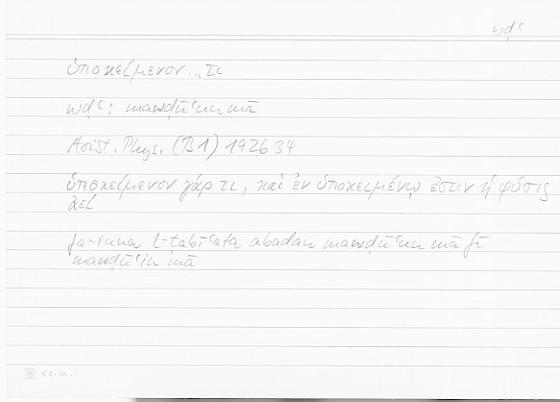 wḍʿ
ὑποκείμενον...τι
wḍʿ: mawḍūʿun mā
Arist. Phys. (B 1) 192b34
ὑποκείμενον γάρ τι, καὶ ἐν ὑποκειμένῳ ἐστὶν ἡ φύσις
ἀεί
fa-inna l-ṭabīʿata abadan mawḍūʿun mā fī
mawḍūʿin mā